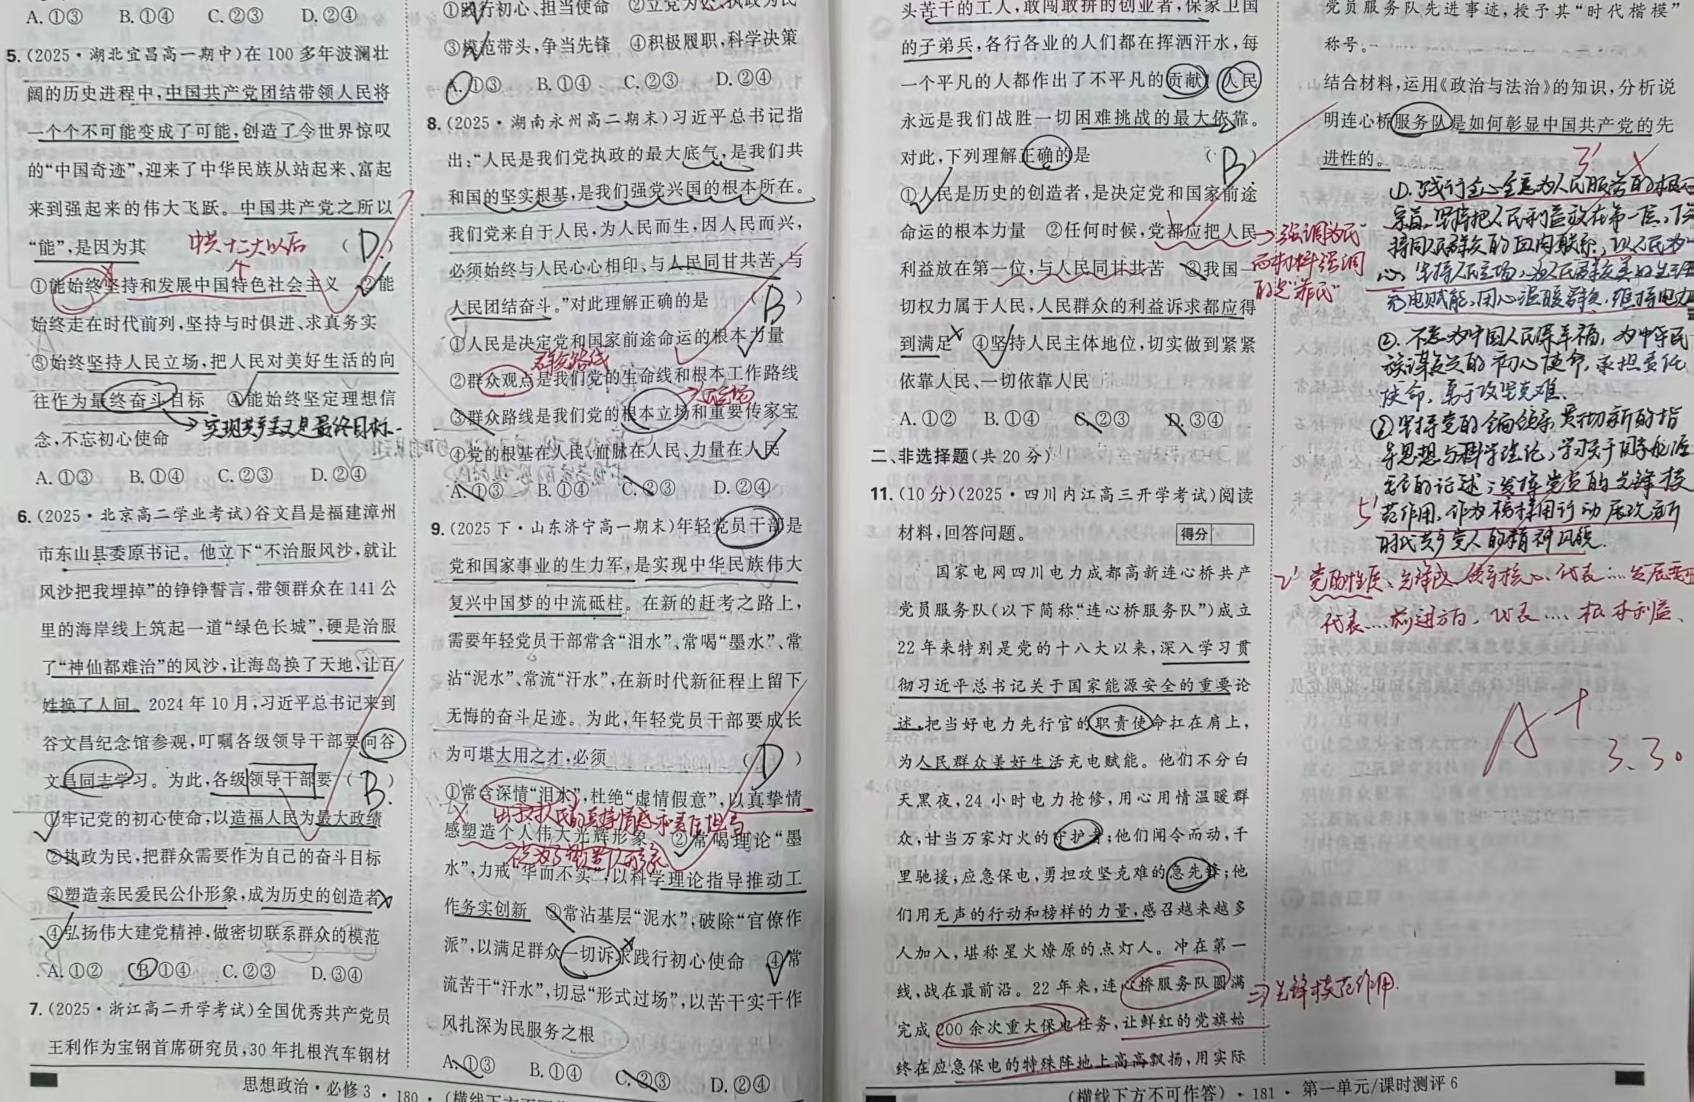 A. ①③ B. ①④ C. ②③ D. ②④
5. (2025·湖北宜昌高一期中)在 100 多年波澜壮
阔的历史进程中,中国共产党团结带领人民将
一个个不可能变成了可能,创造了令世界惊叹
的“中国奇迹”,迎来了中华民族从站起来、富起
来到强起来的伟大飞跃。中国共产党之所以
“能”,是因为其 中共十二大以后 ( D. )
①能始终坚持和发展中国特色社会主义 ②能
始终走在时代前列,坚持与时俱进、求真务实
③始终坚持人民立场,把人民对美好生活的向
往作为最终奋斗目标 ④能始终坚定理想信
念,不忘初心使命 →实现共产主义是最终目标
A. ①③ B. ①④ C. ②③ D. ②④
6. (2025·北京高二学业考试)谷文昌是福建漳州
市东山县委原书记。他立下“不治服风沙,就让
风沙把我埋掉”的铮铮誓言,带领群众在 141 公
里的海岸线上筑起一道“绿色长城”,硬是治服
了“神仙都难治”的风沙,让海岛换了天地,让百
姓换了人间。2024 年 10 月,习近平总书记来到
谷文昌纪念馆参观,叮嘱各级领导干部要向谷
文昌同志学习。为此,各级领导干部要 ( B. )
①牢记党的初心使命,以造福人民为最大政绩
②执政为民,把群众需要作为自己的奋斗目标
③塑造亲民爱民公仆形象,成为历史的创造者
④弘扬伟大建党精神,做密切联系群众的模范
A. ①② B. ①④ C. ②③ D. ③④
7. (2025·浙江高二开学考试)全国优秀共产党员
王利作为宝钢首席研究员,30 年扎根汽车钢材
思想政治·必修 3 · 180 ·
①践行初心、担当使命 ②立党为公、执政为民
③模范带头,争当先锋 ④积极履职,科学决策
A. ①③ B. ①④ C. ②③ D. ②④
8. (2025·湖南永州高二期末)习近平总书记指
出:“人民是我们党执政的最大底气,是我们共
和国的坚实根基,是我们强党兴国的根本所在。
我们党来自于人民,为人民而生,因人民而兴,
必须始终与人民心心相印、与人民同甘共苦、与
人民团结奋斗。”对此理解正确的是 ( B )
①人民是决定党和国家前途命运的根本力量
群众路线
②群众观点是我们党的生命线和根本工作路线
③群众路线是我们党的根本立场和重要传家宝
④党的根基在人民、血脉在人民、力量在人民
A. ①③ B. ①④ C. ②③ D. ②④
9. (2025 下·山东济宁高一期末)年轻党员干部是
党和国家事业的生力军,是实现中华民族伟大
复兴中国梦的中流砥柱。在新的赶考之路上,
需要年轻党员干部常含“泪水”、常喝“墨水”、常
沾“泥水”、常流“汗水”,在新时代新征程上留下
无悔的奋斗足迹。为此,年轻党员干部要成长
为可堪大用之才,必须 ( D )
①常含深情“泪水”,杜绝“虚情假意”,以真挚情
感塑造个人伟大光辉形象 ②常喝理论“墨
水”,力戒“华而不实”,以科学理论指导推动工
作务实创新 ③常沾基层“泥水”,破除“官僚作
派”,以满足群众一切诉求践行初心使命 ④常
流苦干“汗水”,切忌“形式过场”,以苦干实干作
风扎深为民服务之根
A. ①③ B. ①④ C. ②③ D. ②④
头苦干的工人,敢闯敢拼的创业者,保家卫国
的子弟兵,各行各业的人们都在挥洒汗水,每
一个平凡的人都作出了不平凡的贡献!人民
永远是我们战胜一切困难挑战的最大依靠。
对此,下列理解正确的是 ( B )
①人民是历史的创造者,是决定党和国家前途
命运的根本力量 ②任何时候,党都应把人民
利益放在第一位,与人民同甘共苦 ③我国一
切权力属于人民,人民群众的利益诉求都应得
到满足 ④坚持人民主体地位,切实做到紧紧
依靠人民、一切依靠人民
→强调为民
而材料强调
的是“靠民”
A. ①② B. ①④ C. ②③ D. ③④
二、非选择题(共 20 分)
11. (10 分)(2025·四川内江高三开学考试)阅读
材料,回答问题。 得分
国家电网四川电力成都高新连心桥共产
党员服务队(以下简称“连心桥服务队”)成立
22 年来特别是党的十八大以来,深入学习贯
彻习近平总书记关于国家能源安全的重要论
述,把当好电力先行官的职责使命扛在肩上,
为人民群众美好生活充电赋能。他们不分白
天黑夜,24 小时电力抢修,用心用情温暖群
众,甘当万家灯火的守护者;他们闻令而动,千
里驰援,应急保电,勇担攻坚克难的急先锋;他
们用无声的行动和榜样的力量,感召越来越多
人加入,堪称星火燎原的点灯人。冲在第一
线,战在最前沿。22 年来,连心桥服务队圆满
⇒先锋模范作用
完成 200 余次重大保电任务,让鲜红的党旗始
终在应急保电的特殊阵地上高高飘扬,用实际
(横线下方不可作答) · 181 · 第一单元/课时测评 6
党员服务队先进事迹,授予其“时代楷模”
称号。
结合材料,运用《政治与法治》的知识,分析说
明连心桥服务队是如何彰显中国共产党的先
进性的。 3'
①. 践行全心全意为人民服务的根本
宗旨,坚持把人民利益放在第一位,
持同人民群众的血肉联系,以人民为
心,坚持人民立场,为人民群众美好生活
充电赋能,用心温暖群众,维持电力
②. 不忘为中国人民谋幸福,为中华民
族谋复兴的初心使命,承担责任
使命,勇于攻坚克难.
③坚持党的全面领导,贯彻新的指
导思想与科学理论,学习关于国家能源
安全的论述;发挥党员的先锋模
5' 范作用,作为榜样用行动展现新
时代共产党人的精神风貌.
2' 党的性质、先锋队、领导核心、代表…发展要
代表…前进方向,代表…根本利益、
A+
3.30